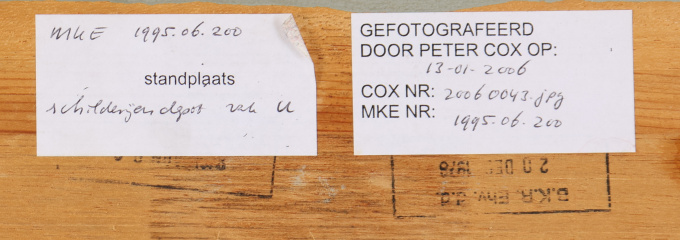 MKE 1995.06.200
standplaats
schilderijendepot vak U
GEFOTOGRAFEERD
DOOR PETER COX OP:
13-01-2006
COX NR: 20060043.jpg
MKE NR:
1995.06.200
B.K.R. Ehv. d.d.
20 DEC 1978